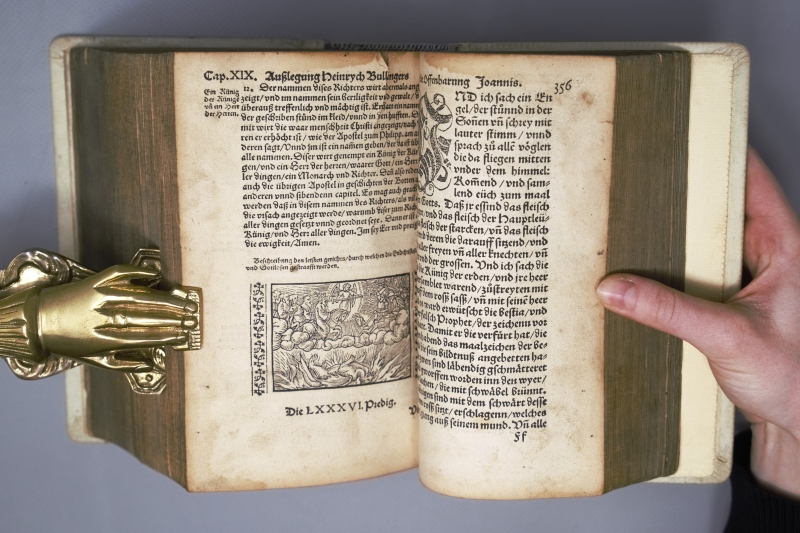 Cap. XIX. Außlegung Heinrych Bullingers
Ein Künig
der Künigē
vn̄ ein Herr
der Herren.
12. Der nammen dises Richters wirt abermals ang
zeigt / vnd im nammen sein herrligkeit vnd gewalt /
überauß treffenlich vnd mächtig ist. Er hat ein namen
der geschriben stünd im kleid / vnnd in jen hufften. So
mit wirt die waar menschheit Christi angezeigt / nach
ren er erhöcht ist / wie der Apostel zun Philipp. am
deren sagt / Vnnd jm ist ein namen geben / der da ist üb
alle nammen. Diser wirt genempt ein Künig der Kün
gen / vnd ein Herr der herren / waarer Gott / ein Herr
ler dingen / ein Monarch vnd Richter. Daß also reden
auch die übrigen Apostel in geschichten der Botten am
anderen vnnd sibendenn capitel. Es mag auch
werden daß in disem nammen des Richters / als
die vrsach angezeigt werde / warumb diser zum Rich
aller dingen gesetzt vnnd geordnet seye. Dann er ist
Künig / vnd Herr aller dingen. Im sey Eer vnd preiß
die ewigkeit / Amen.
Beschreibung des letsten gerichts / durch welches die
vnd Gottlosen gestrafft werden.
Die LXXXVI. Predig.
Offenbarung Joannis.
356
VND ich sach ein En
gel / der stünnd in der
Soñen vn̄ schrey mit
lauter stimm / vnnd
sprach zů allē vöglen
die da fliegen mitten
vnder dem himmel:
Kom̄end / vnd sam-
lend eüch zum maal
Gotts. Daß jr essind das fleisch
vnd das fleisch der Hauptleü-
fleisch der starcken / vn̄ das fleisch
deren die darauff sitzend / vnd
aller freyen vn̄ aller knechten / vn̄
vnd der grossen. Vnd ich sach die
Künig der erden / vnd jre heer
samblet warend / züstreyten mit
dem rossz saß / vn̄ mit seinē heer
ward erwütscht die bestia / vnd
falsch Prophet / der zeichenn vor
Damit er die verfürt hat / die
habend das maalzeichen der be-
sein bildtnuß angebetten ha-
sind läbendig gschmätteret
geworffen worden inn den wyer /
die mit schwäbel brünnt.
sind mit dem schwärt desse
rossz sitzt / erschlagenn / welches
gieng auß seinem mund. Vn̄ alle
Ff